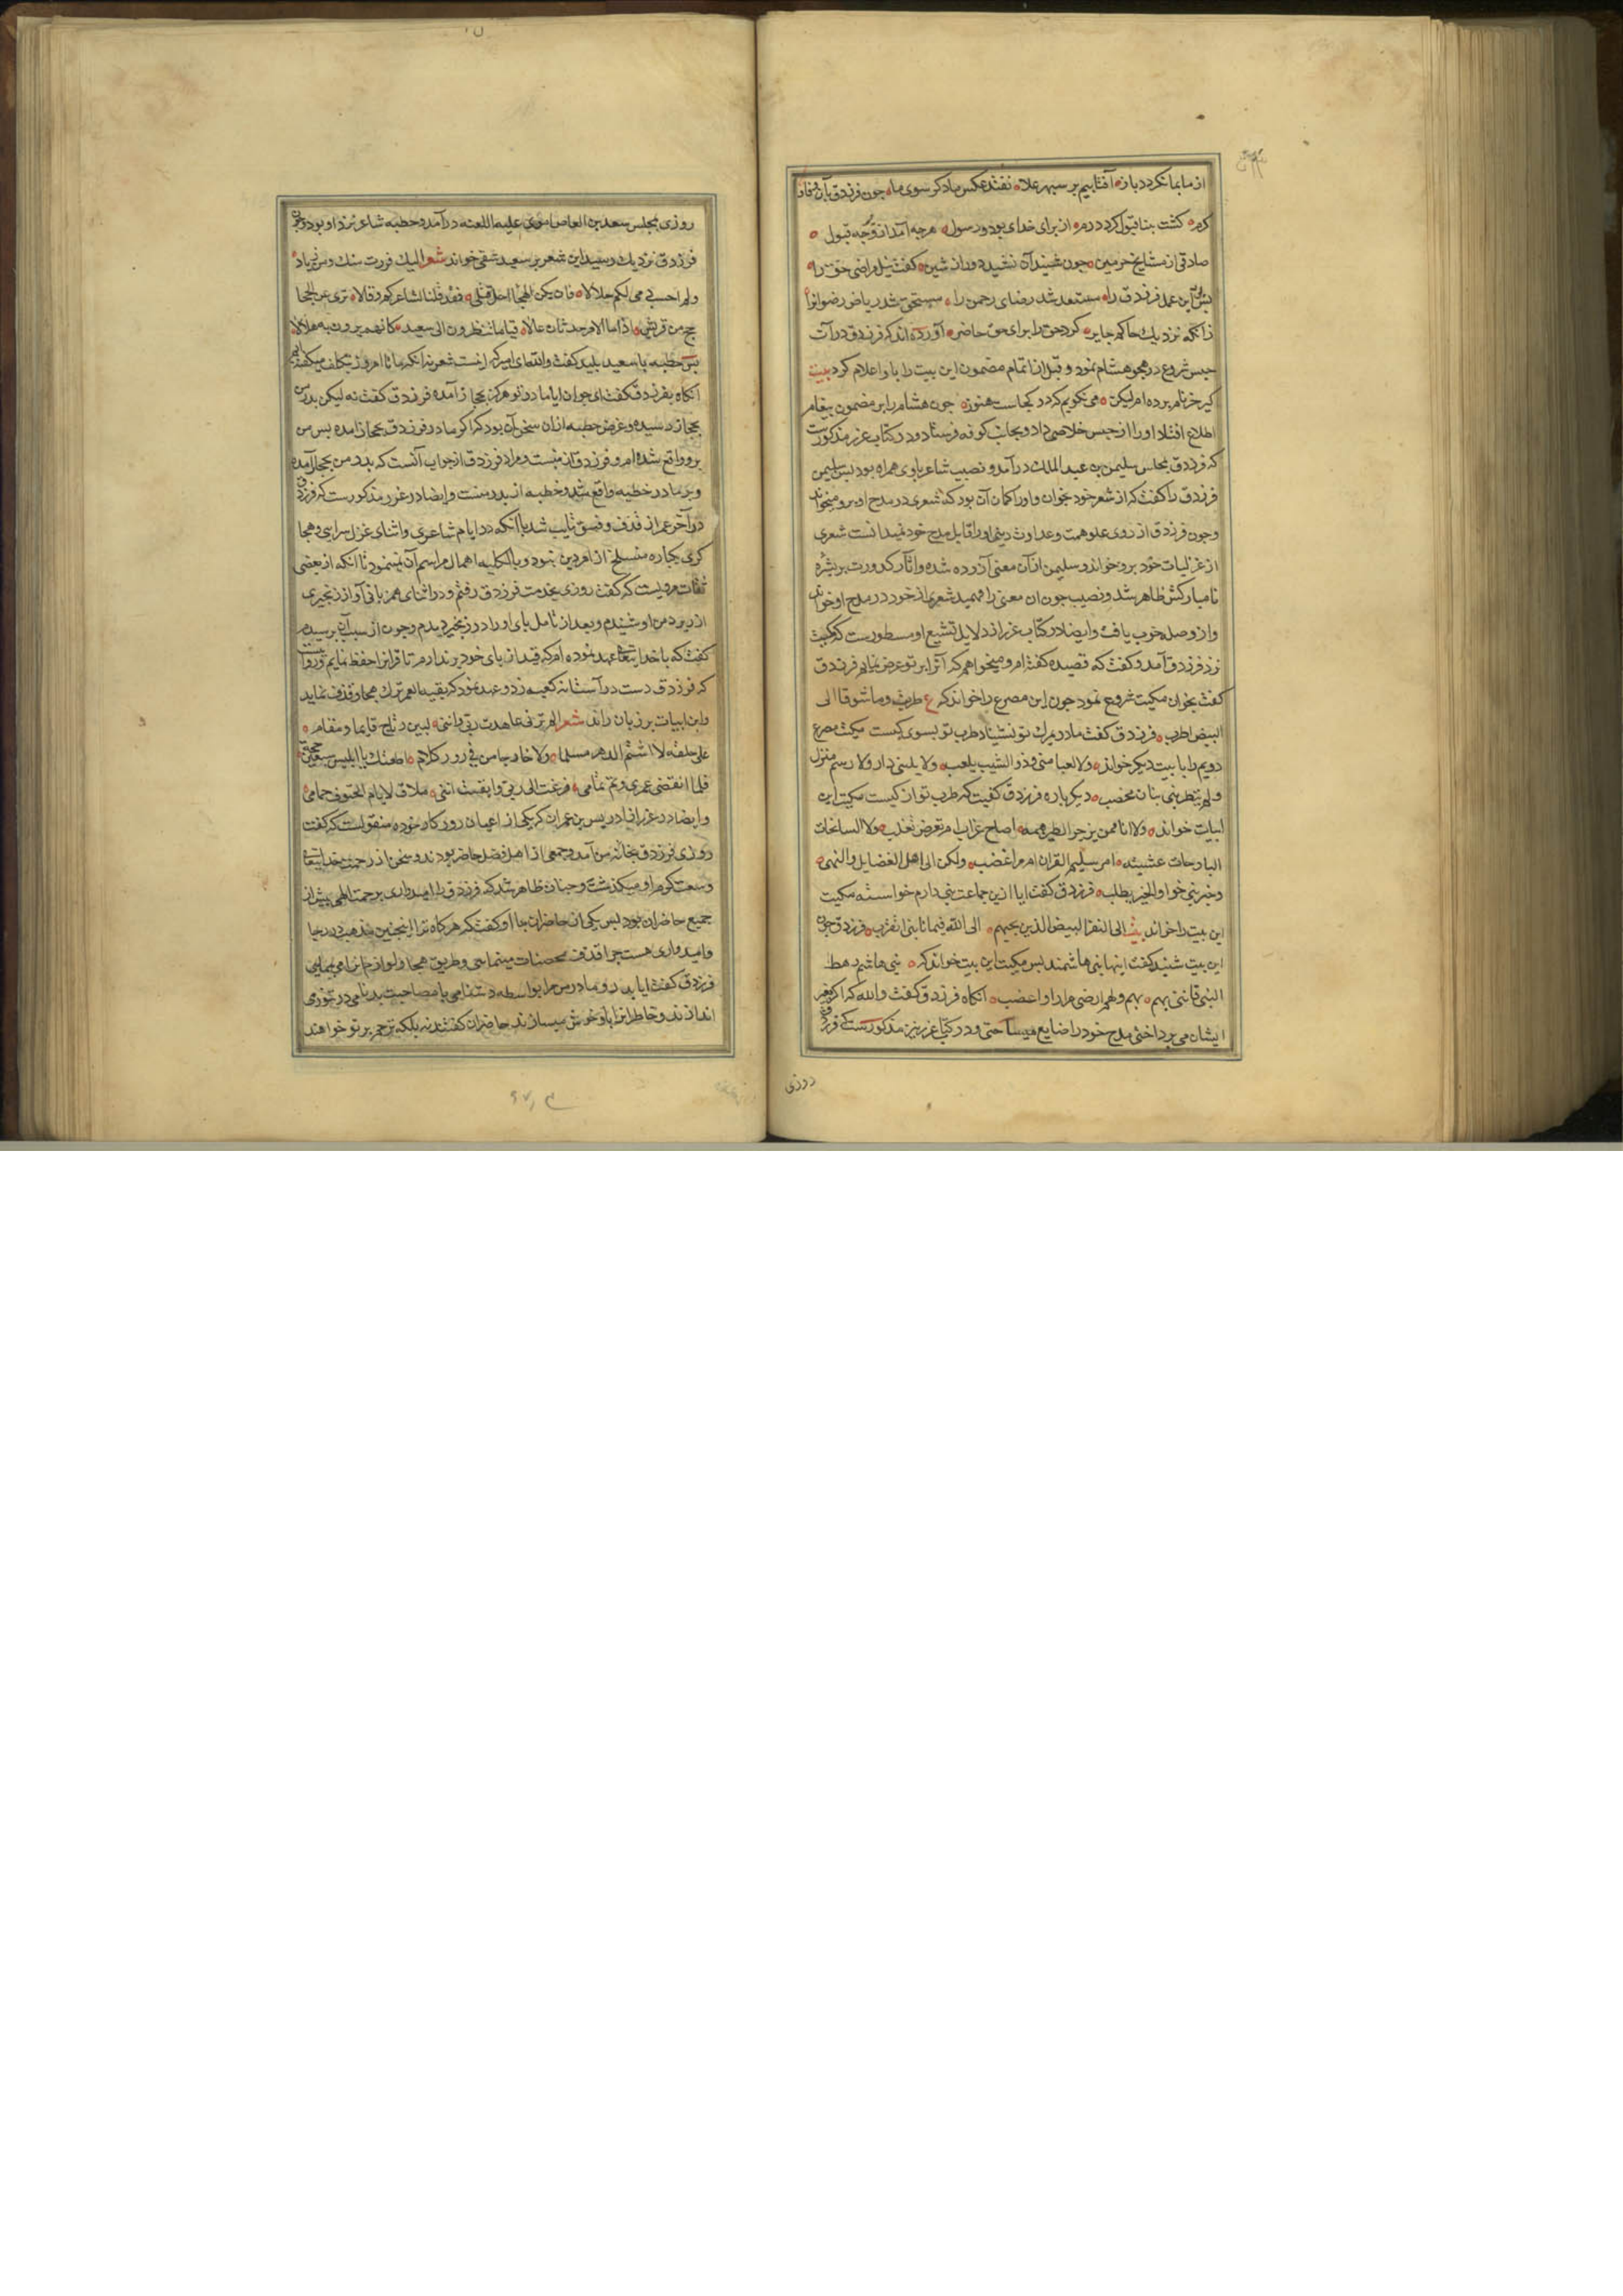 از ما بما نکردد باز آفتابیم بر سپهر علا نفتد عکس ما دکر سوی ما جون فرزدق بآن وفا و
کرم کشت بنا قبول کرد درم از برای خدای بود و رسول هر جه آمد از و جه قبول
صادقی از مشایخ حرمین جون شنید آن نشید دور از شین کفت نیل مراضی حق را
بس بود این عمل فرزدق را مستعد شد رضای رحمن را مستحق شد ریاض رضوانرا
زانکه نزدیک حاکم جابر کرد حق را برای حق حاضر آورده اند که فرزدق در آن
حبس شروع در هجو هشام نمود و قبل از اتمام مضمون این بیت را باو اعلام کرد بیت
کیر خر نام برده ام لیکن می نکویم که در کجاست هنوز جون هشام را بر مضمون پیغام
اطلاع افتاد او را از حبس خلاصی داد و بجانب کوفه فرستاد و در کتاب غرر مذکورست
که فرزدق بمجلس سلیمن بن عبد الملک در آمد و نصیب شاعر باوی همراه بود بس سلیمن
فرزدق را کفت که از شعر خود بخوان و او را کمان آن بود که شعری در مدح او برو میخواند
وجون فرزدق از روی علو همت و عداوت دینی او را قابل مدح خود نمیدانست شعری
از غزلیات خود برو خواند و سلیمن از آن معنی آزرده شده و آثار کدورت بر بشره
نامبارکش ظاهر شد و نصیب جون ان معنی را فهمید شعری از خود در مدح او خواند
و ازو صله خوب یافت و ایضا در کتاب غرر از دلایل تشیع او مسطورست که کمیت
نزد فرزدق آمد و کفت که قصیده کفته ام و میخواهم که آنرا بر تو عرض نمایم فرزدق
کفت بخوان کمیت شروع نمود جون این مصرع را خواند که ع طربت و ما شوقا الی
البیض اطرب فرزدق کفت مادر بمرک تو نشیناد طرب تو بسوی کیست کمیت مصرع
دویم را با بیت دیکر خواند ولا لعبا منی وذو الشیب یلعب ولا یلهنی دار ولا رسم منزل
ولم یتطربنی بنان مخضب دیکر باره فرزدق کفت که طرب تو از کیست کمیت این
ابیات خواند ولا انا ممن یزجر الطیر همه اصاح غراب ام تعرض ثعلب ولا السانحات
البارحات عشیة امر سلیم القرن ام مر اعضب ولکن الی اهل الفضایل والنهی
وخیر بنی حوا والخیر یطلب فرزدق کفت ایا ازین جماعت بنی دارم خواسته کمیت
این بیت را خواند بیت الی النفر البیض الذین بحبهم الی الله فیما نابنی اتقرب فرزدق جون
این بیت شنید کفت اینها بنی هاشمند بس کمیت این بیت خواند که بنی هاشم رهط
النبی فاننی بهم بهم ولهم ارضی مرارا واغضب انکاه فرزدق کفت والله که اکر بغیر
ایشان می پرداختی مدح خود را ضایع میساختی و در کتاب غرر نیز مذکورست که فرزدق
روزی
روزی بمجلس سعید بن العاص اموی علیه اللعنه در آمد و حطیه شاعر نزد او بود وجون
فرزدق نزدیک رسید این شعر بر سعید شقی خواند شعر الیک فررت منک ومن زیاد
ولم احسب دمی لکم حلالا فان یکن الهجا احل قتلی فقد قلنا لشاعرکم وقالا تری غر الجحا
جح من قریش اذا ما الامر حدثان عالا قیاما ینظرون الی سعید کانهم یرون به هلالا
بس حطیه با سعید بلید کفت والله ای امیر که اینست شعر نه انکه ما تا امروز بتکلف میکفته ایم
انکاه بفرزدق کفت ای جوان ایا مادر تو هرکز بحجاز آمده فرزدق کفت نه لیکن پدر من
بحجاز رسیده و غرض حطیه از ان سخن آن بود که اکر مادر فرزدق بحجاز امده بس من
برو واقع شده ام و فرزدق از منست و مراد فرزدق از جواب آنست که بدر من بحجاز آمده
و بر مادر حطیه واقع شد و حطیه از بدر منست و ایضا در غرر مذکورست که فرزدق
در آخر عمر از قذف و فسق تایب شد با آنکه در ایام شاعری و اثنای غزل سرایی و هجا
کری یکباره منسلخ از امر دین نبود و بالکلیه اهمال مراسم آن نمینمود تا انکه از بعضی
ثقات مرویست که کفت روزی بخدمت فرزدق رفتم و در اثنای همزبانی آواز زنجیری
از زیر دامن او شنیدم و بعد از تامل پای او را در زنجیر دیدم وجون از سبب آن پرسیدم
کفت که با خدایتعالی عهد نموده ام که قید از پای خود برندارم تا قرانرا حفظ نمایم و روایت است
که فرزدق دست در آستانه کعبه زد و عهد نمود که بقیه العمر ترک هجا و قذف نماید
و این ابیات بر زبان راند شعر الم ترنی عاهدت ربی واننی لبین رتاج قایما ومقام
علی حلفة لا اشتم الدهر مسلما ولا خارجا من فی زور کلام اطعتک یا ابلیس سبعین حجة
فلما انقضی عمری وتم تمامی فزعت الی ربی وایقنت اننی ملاق لایام الحتوف حمامی
و ایضا در غرر از ادریس بن عمران که یکی از اعیان روزکار خوده منقولست که کفت
روزی فرزدق بخانه من آمد و جمعی از اهل فضل حاضر بودند و سخن از رحمت خدایتعالی
و سعت کرم او میکذشت و جنان ظاهر شد که فرزدق را امیدواری برحمت الهی بیش از
جمیع حاضران بود بس یکی از حاضران با او کفت که هرکاه ترا اینجنین مذهب در رجا
و امیدواری هست جرا قذف محصنات مینمایی و طریق هجا و لوازم انرا می پیمایی
فرزدق کفت ایا پدر و مادر من مرا بواسطه دشنامی یا مصاحبت بدنامی در تنوری
اندازند و خاطر انرا باو خوش میسازند حاضران کفتند نه بلکه ترحم بر تو خواهند